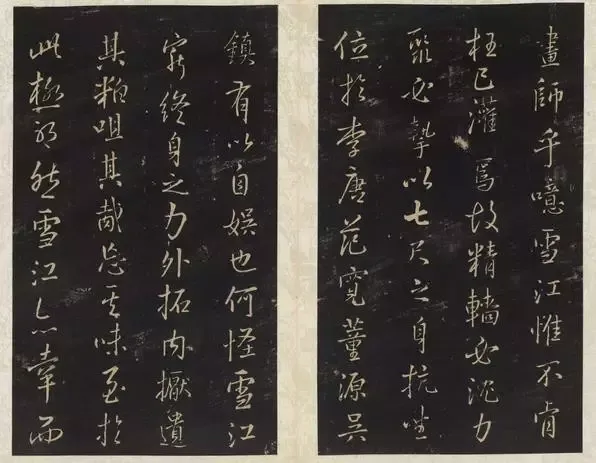 畫師乎噫雪江惟不肯
枉己焉故精必沉力
聚必摯以七尺之身抗坐
位於李唐范寬董源吳
鎮有以自娛也何怪雪江
窮終身之力外拓內擫遺
其粕咀其胾忘其味至於
此極耶然雪江亦幸而